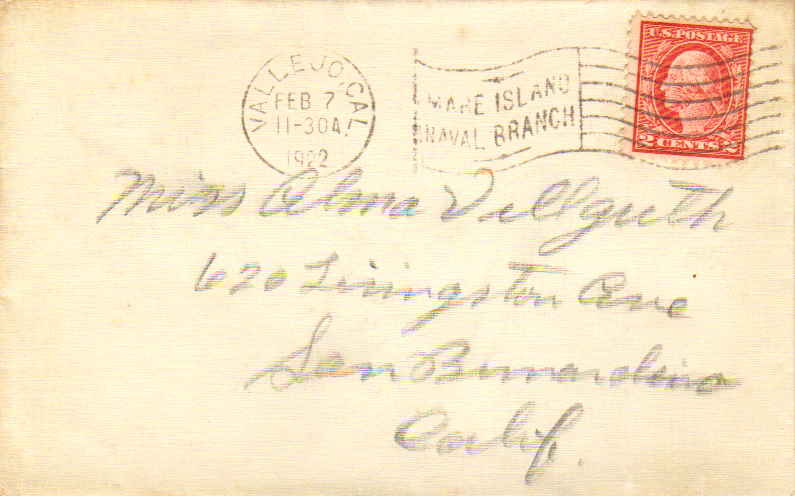 VALLEJO, CAL.
FEB 7
11-30A.
1922
MARE ISLAND
NAVAL BRANCH
U.S. POSTAGE
2 CENTS 2
Miss Alma Villguth
620 Livingston Ave
San Bernardino
Calif.